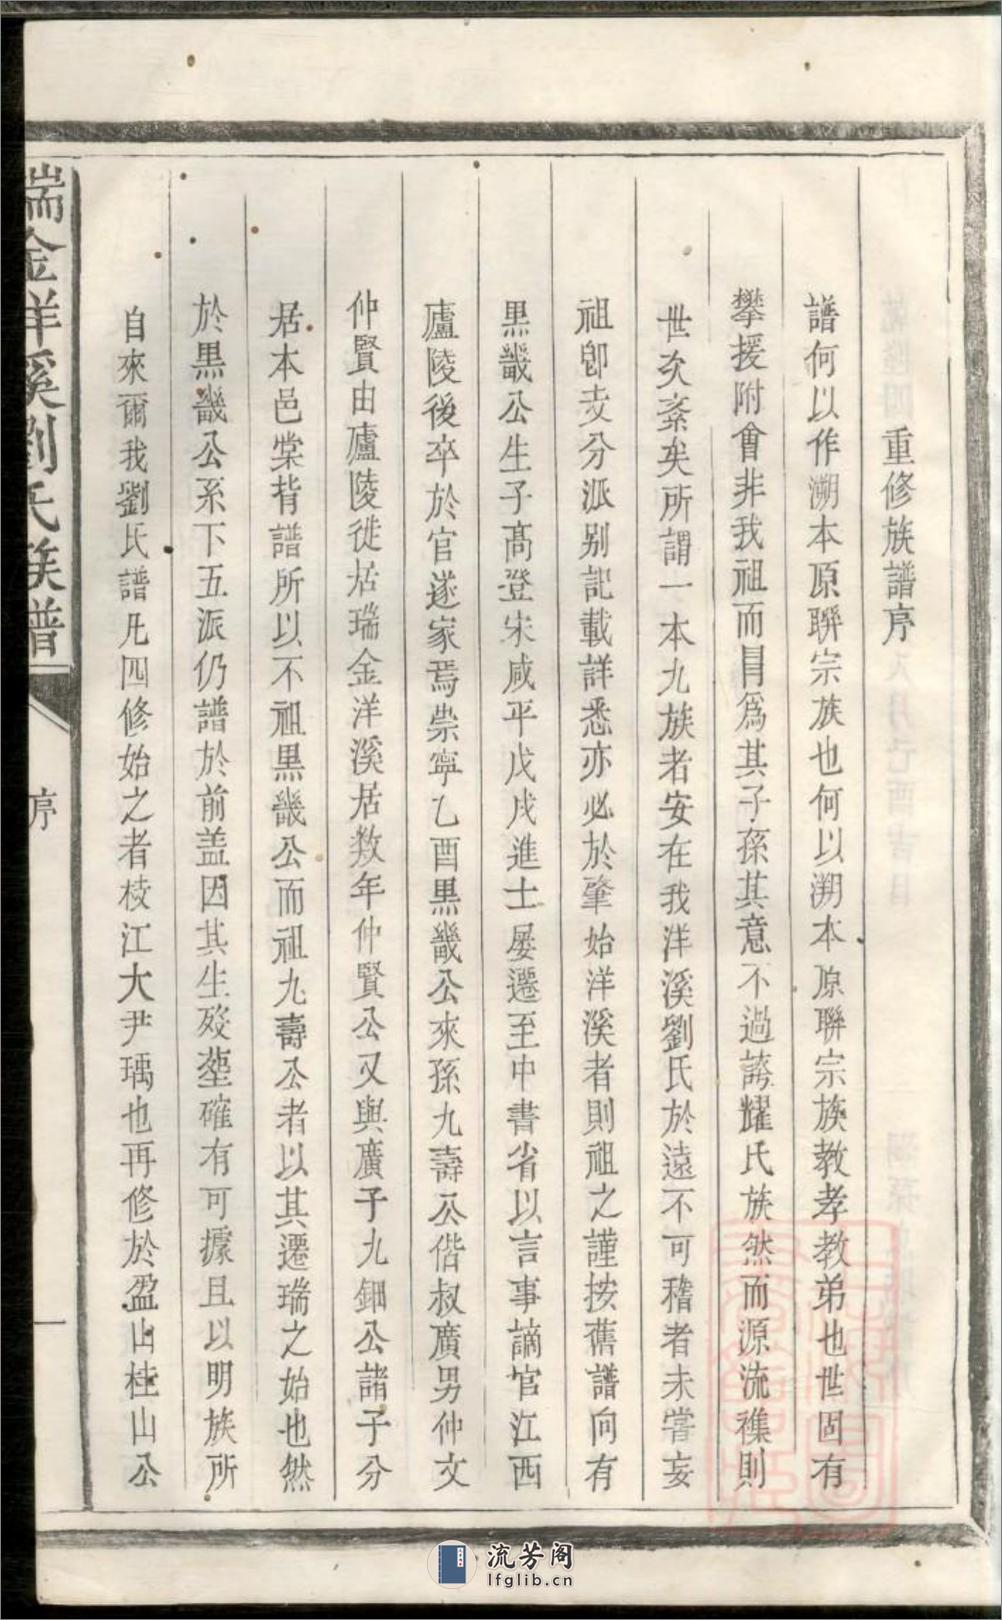 重修族譜序
譜何以作溯本原聨宗族也何以溯本原聨宗族教孝教弟也世固有
攀援附會非我祖而目爲其子孫其意不過誇耀氏族然而源流襍則
世次紊矣所謂一本九族者安在我洋溪劉氏於遠不可稽者未嘗妄
祖卽支分派别記載詳悉亦必於肇始洋溪者則祖之謹按舊譜向有
黒畿公生子髙登宋咸平戊戌進士屡遷至中書省以言事謫官江西
廬陵後卒於官遂家焉崇寧乙酉黒畿公來孫九壽公偕叔廣男仲文
仲賢由廬陵徙居瑞金洋溪居数年仲賢公又與廣子九鈿公諸子分
居本邑棠背譜所以不祖黒畿公而祖九壽公者以其遷瑞之始也然
於黒畿公系下五派仍譜於前盖因其生殁塟確有可據且以明族所
自來爾我劉氏譜凡四修始之者枝江大尹瑀也再修於盈山桂山公
瑞金洋溪劉氏族譜
序
一
流芳阁
lfglib.cn